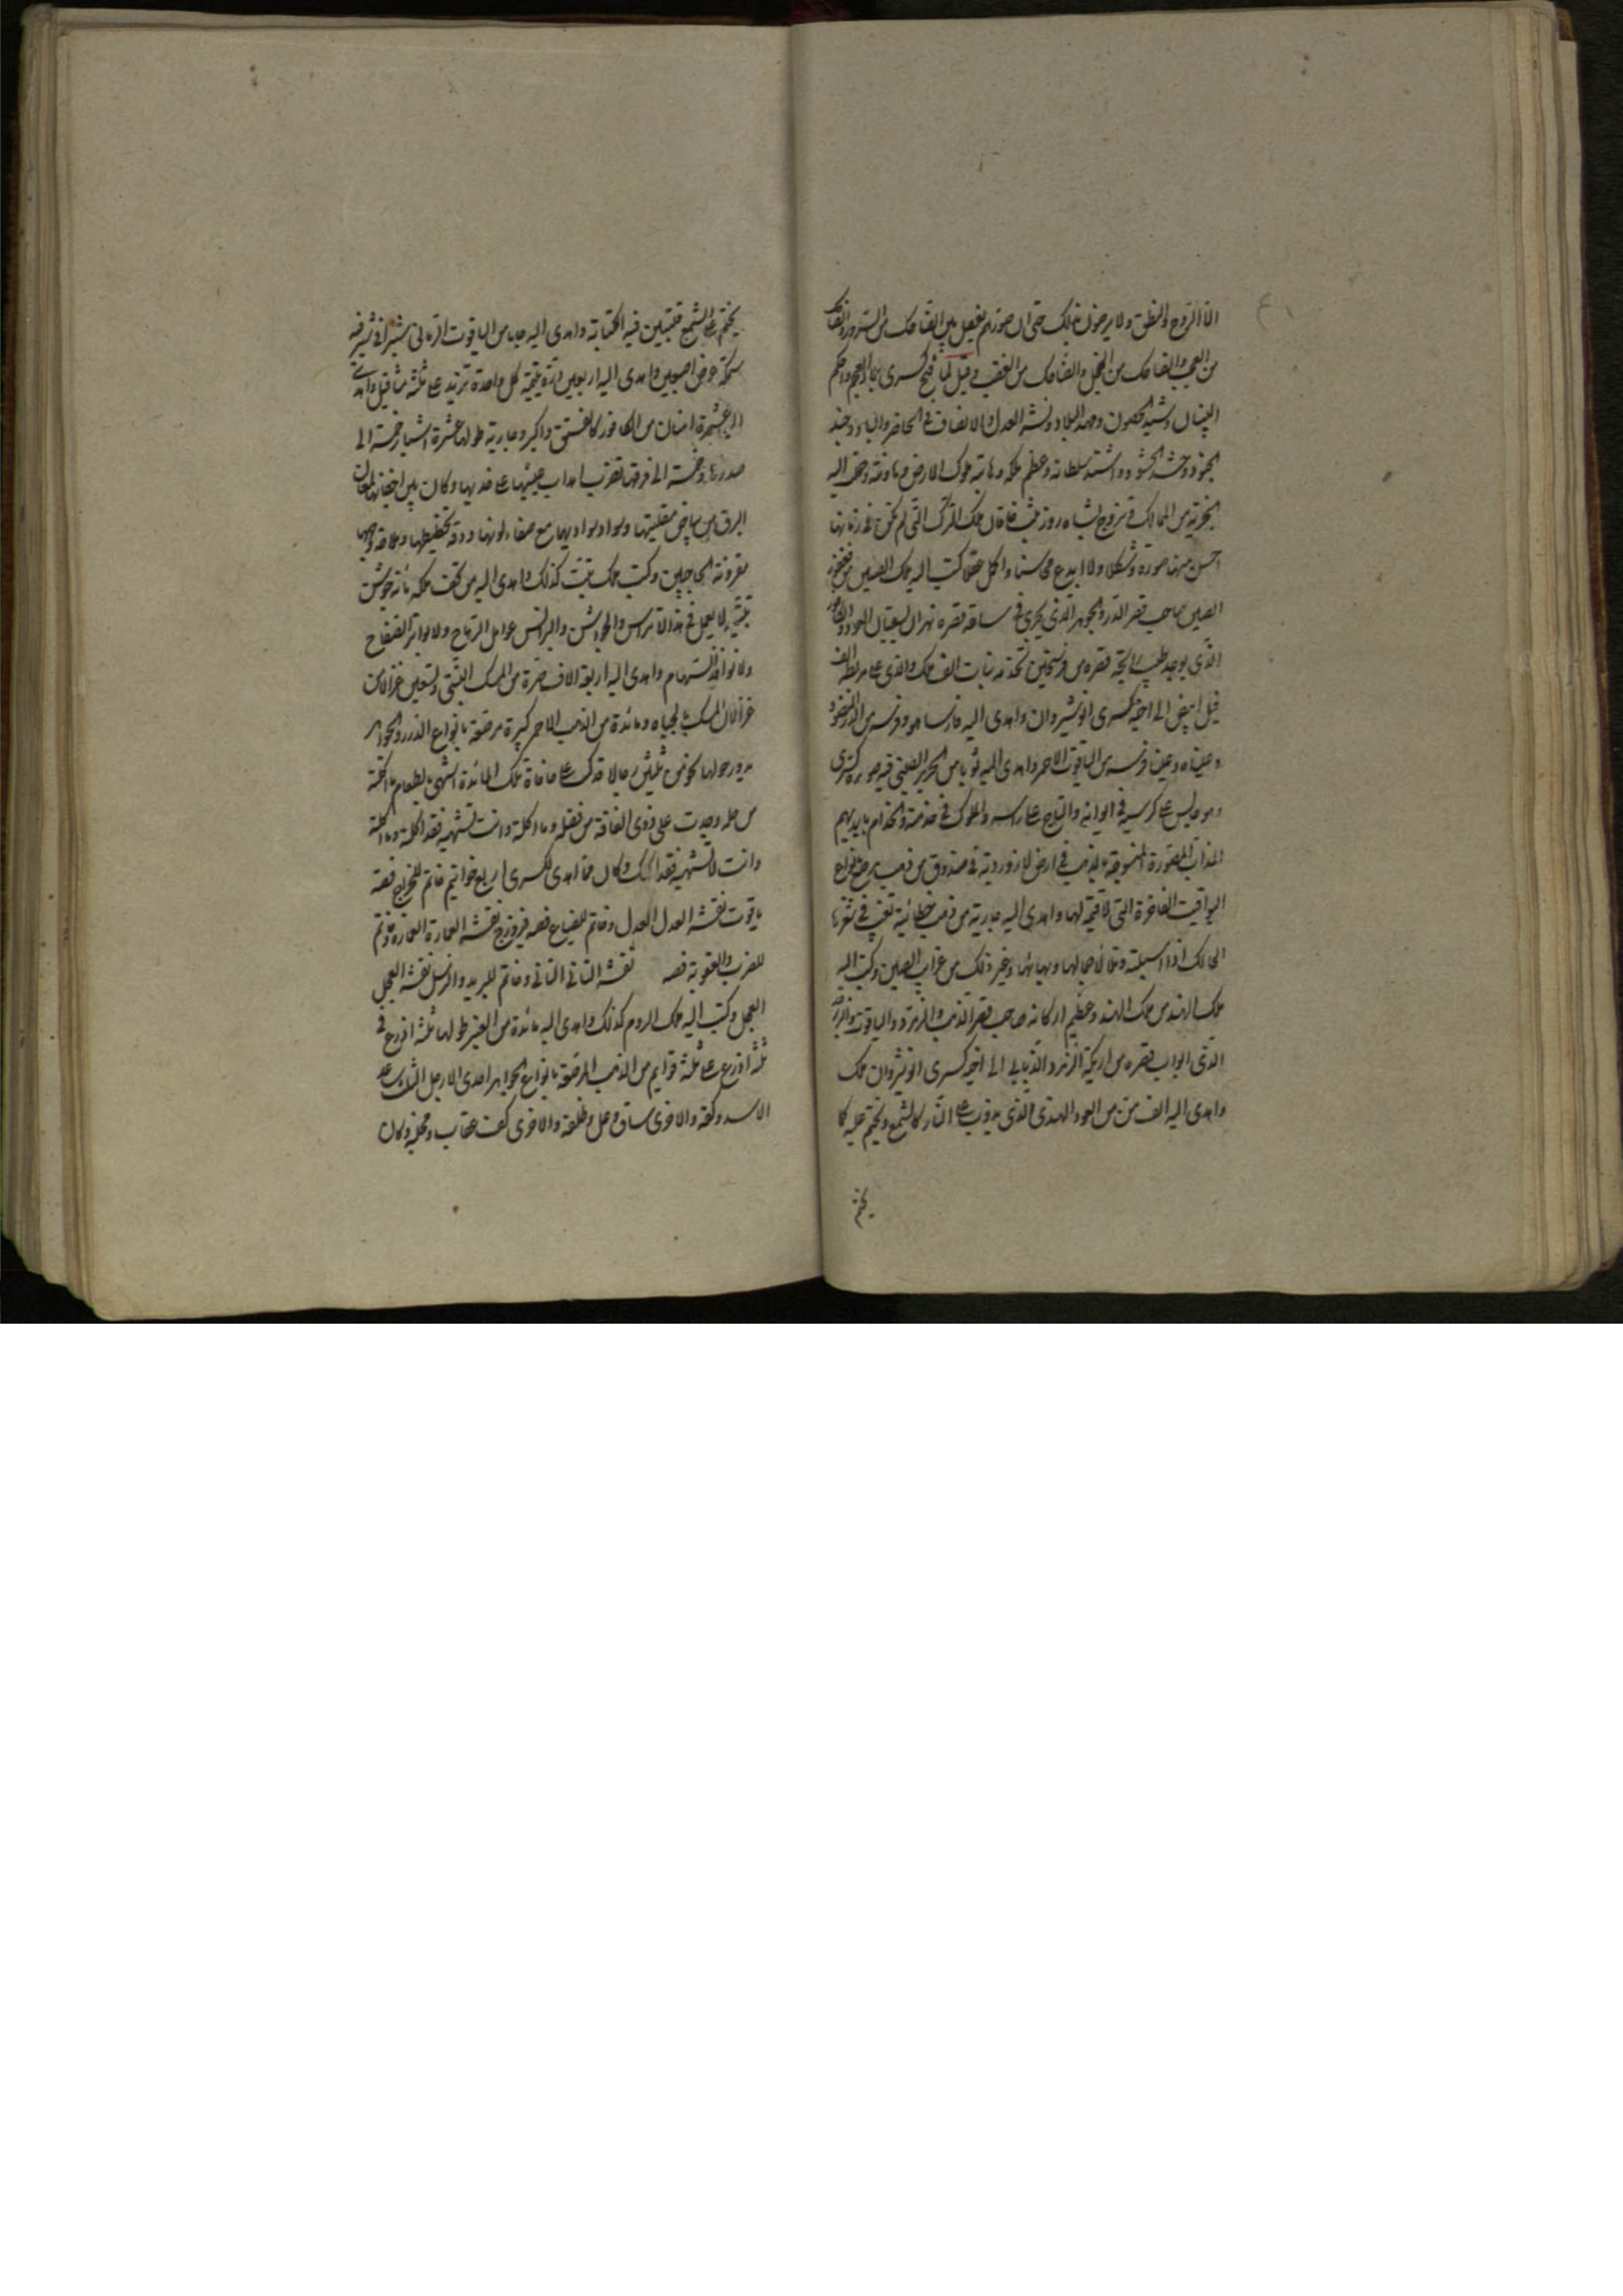 الا الروح والنطق ولا يرضون بذلك حتى ان صورتهم تفصل بين الضاحك من السرور والضاحك
من العجب والضاحك من الخجل والضاحك من الغضب وقيل لما فتح كسرى بلاد العجم واحكم
البنيان وشيد الحصون ومهد البلاد ونشر العدل والانصاف في الحاضر والباد وجند
الجنود وحشد الحشود واشتد سلطانه وعظم ملكه وهابته ملوك الارض وهادنته وحملت اليه
الجزية من الممالك وتزوج بشاه روز بنت خاقان ملك الترك التي لم يكن في زمانها
احسن منها صورة وشكلا ولا ابدع محاسنا واكمل عقلا كتب اليه ملك الصين من فغفور
الصين صاحب قصر الدر والجوهر الذي يجري في ساقة قصره نهران يسقيان العود والكافور
الذي يوجد طيب رائحة قصره من فرسخين وتخدمه بنات الف ملك والذي على مربطه الف
فيل ابيض الى اخيه كسرى انوشيروان واهدى اليه فارسا هو وفرسه من الدر المنضود
وعيناه وعينا فرسه من الياقوت الاحمر واهدى اليه ثوبا من الحرير الصيني فيه صورة كسرى
وهو جالس على كرسيه في ايوانه والتاج على راسه والملوك في خدمته والخدام بايديهم
المذاب المصورة المنسوجة بالذهب في ارض لازوردية في صندوق من ذهب مرصع بانواع
اليواقيت الفاخرة التي لا قيمة لها واهدى اليه جارية من ذهب خطائية تغيب في شعرها
الحالك اذا اسبلته وتلالأ جمالها وبهائها وغير ذلك من غرايب الصين وكتب اليه
ملك الهند من ملك الهند وعظيم اركانه صاحب قصر الذهب والزمرد والياقوت والزبرجد
الذي ابواب قصره من اريكة الزمرد الذبابي الى اخيه كسرى انوشروان ملك
واهدى اليه الف من من العود الهندي الذي يذوب على النار كالشمع ويختم عليه كما
يختم
يختم على الشمع فتتبين فيه الكتابة واهدى اليه جاما من الياقوت الرماني شبرا في شبر فيه
سمكه عرض اصبعين واهدى اليه اربعين درة يتيمة كل واحدة تزيد على ثلثة مثاقيل واهدى
اليه عشرة امنان من الكافور كالفستق واكبر وجارية طولها عشرة اشبار خمسة الى
صدرها وخمسة الى فرقها تضرب اهداب عينيها على خديها وكان بين اجفانها لمعان
البرق من بياض مقلتيها وسواد سوادهما مع صفاء لونها ودقة تخطيطها
مقرونة الحاجبين وكتب ملك تبت كذلك واهدى اليه من تحف ملكه مائة جوشن
تبتية لا يعمل في هذه الاتراس والجواشن والبرانس عوامل الرماح ولا بواتر الصفاح
ولا نوافذ السهام واهدى اليه اربعة الاف صرة من المسك التبتي وتسعين غزالا من
غزلان المسك بالحياه ومائدة من الذهب الاحمر كبيرة مرصعة بانواع الدرر والجواهر
يدور حولها نحو من ثلثين رجلا قد كتب على حافاة تلك المائدة اشهى الطعام ما اكلته
من حله وجدت على ذوي الفاقة من فضله وما اكلته وانت تشتهيه فقد اكلته وما اكلته
وانت لا تشتهيه فقد اكلك وكان مما اهدى لكسرى اربع خواتيم خاتم للخراج فصه
ياقوت نقشه العدل العدل وخاتم للضياع فصه فيروزج نقشه العمارة العمارة وخاتم
للضرب والعقوبة فصه نقشه التاني التاني وخاتم للبريد والرسل نقشه العجل
العجل وكتب اليه ملك الروم كذلك واهدى اليه مائدة من العنبر طولها ثلثة اذرع في
ثلثة اذرع على ثلثة قوايم من الذهب المرصعة بانواع الجواهر احدى الارجل الثلاث ساعد
الاسد وكفه والاخرى ساق وعل وظلفه والاخرى كف عقاب ومخلبه وكان